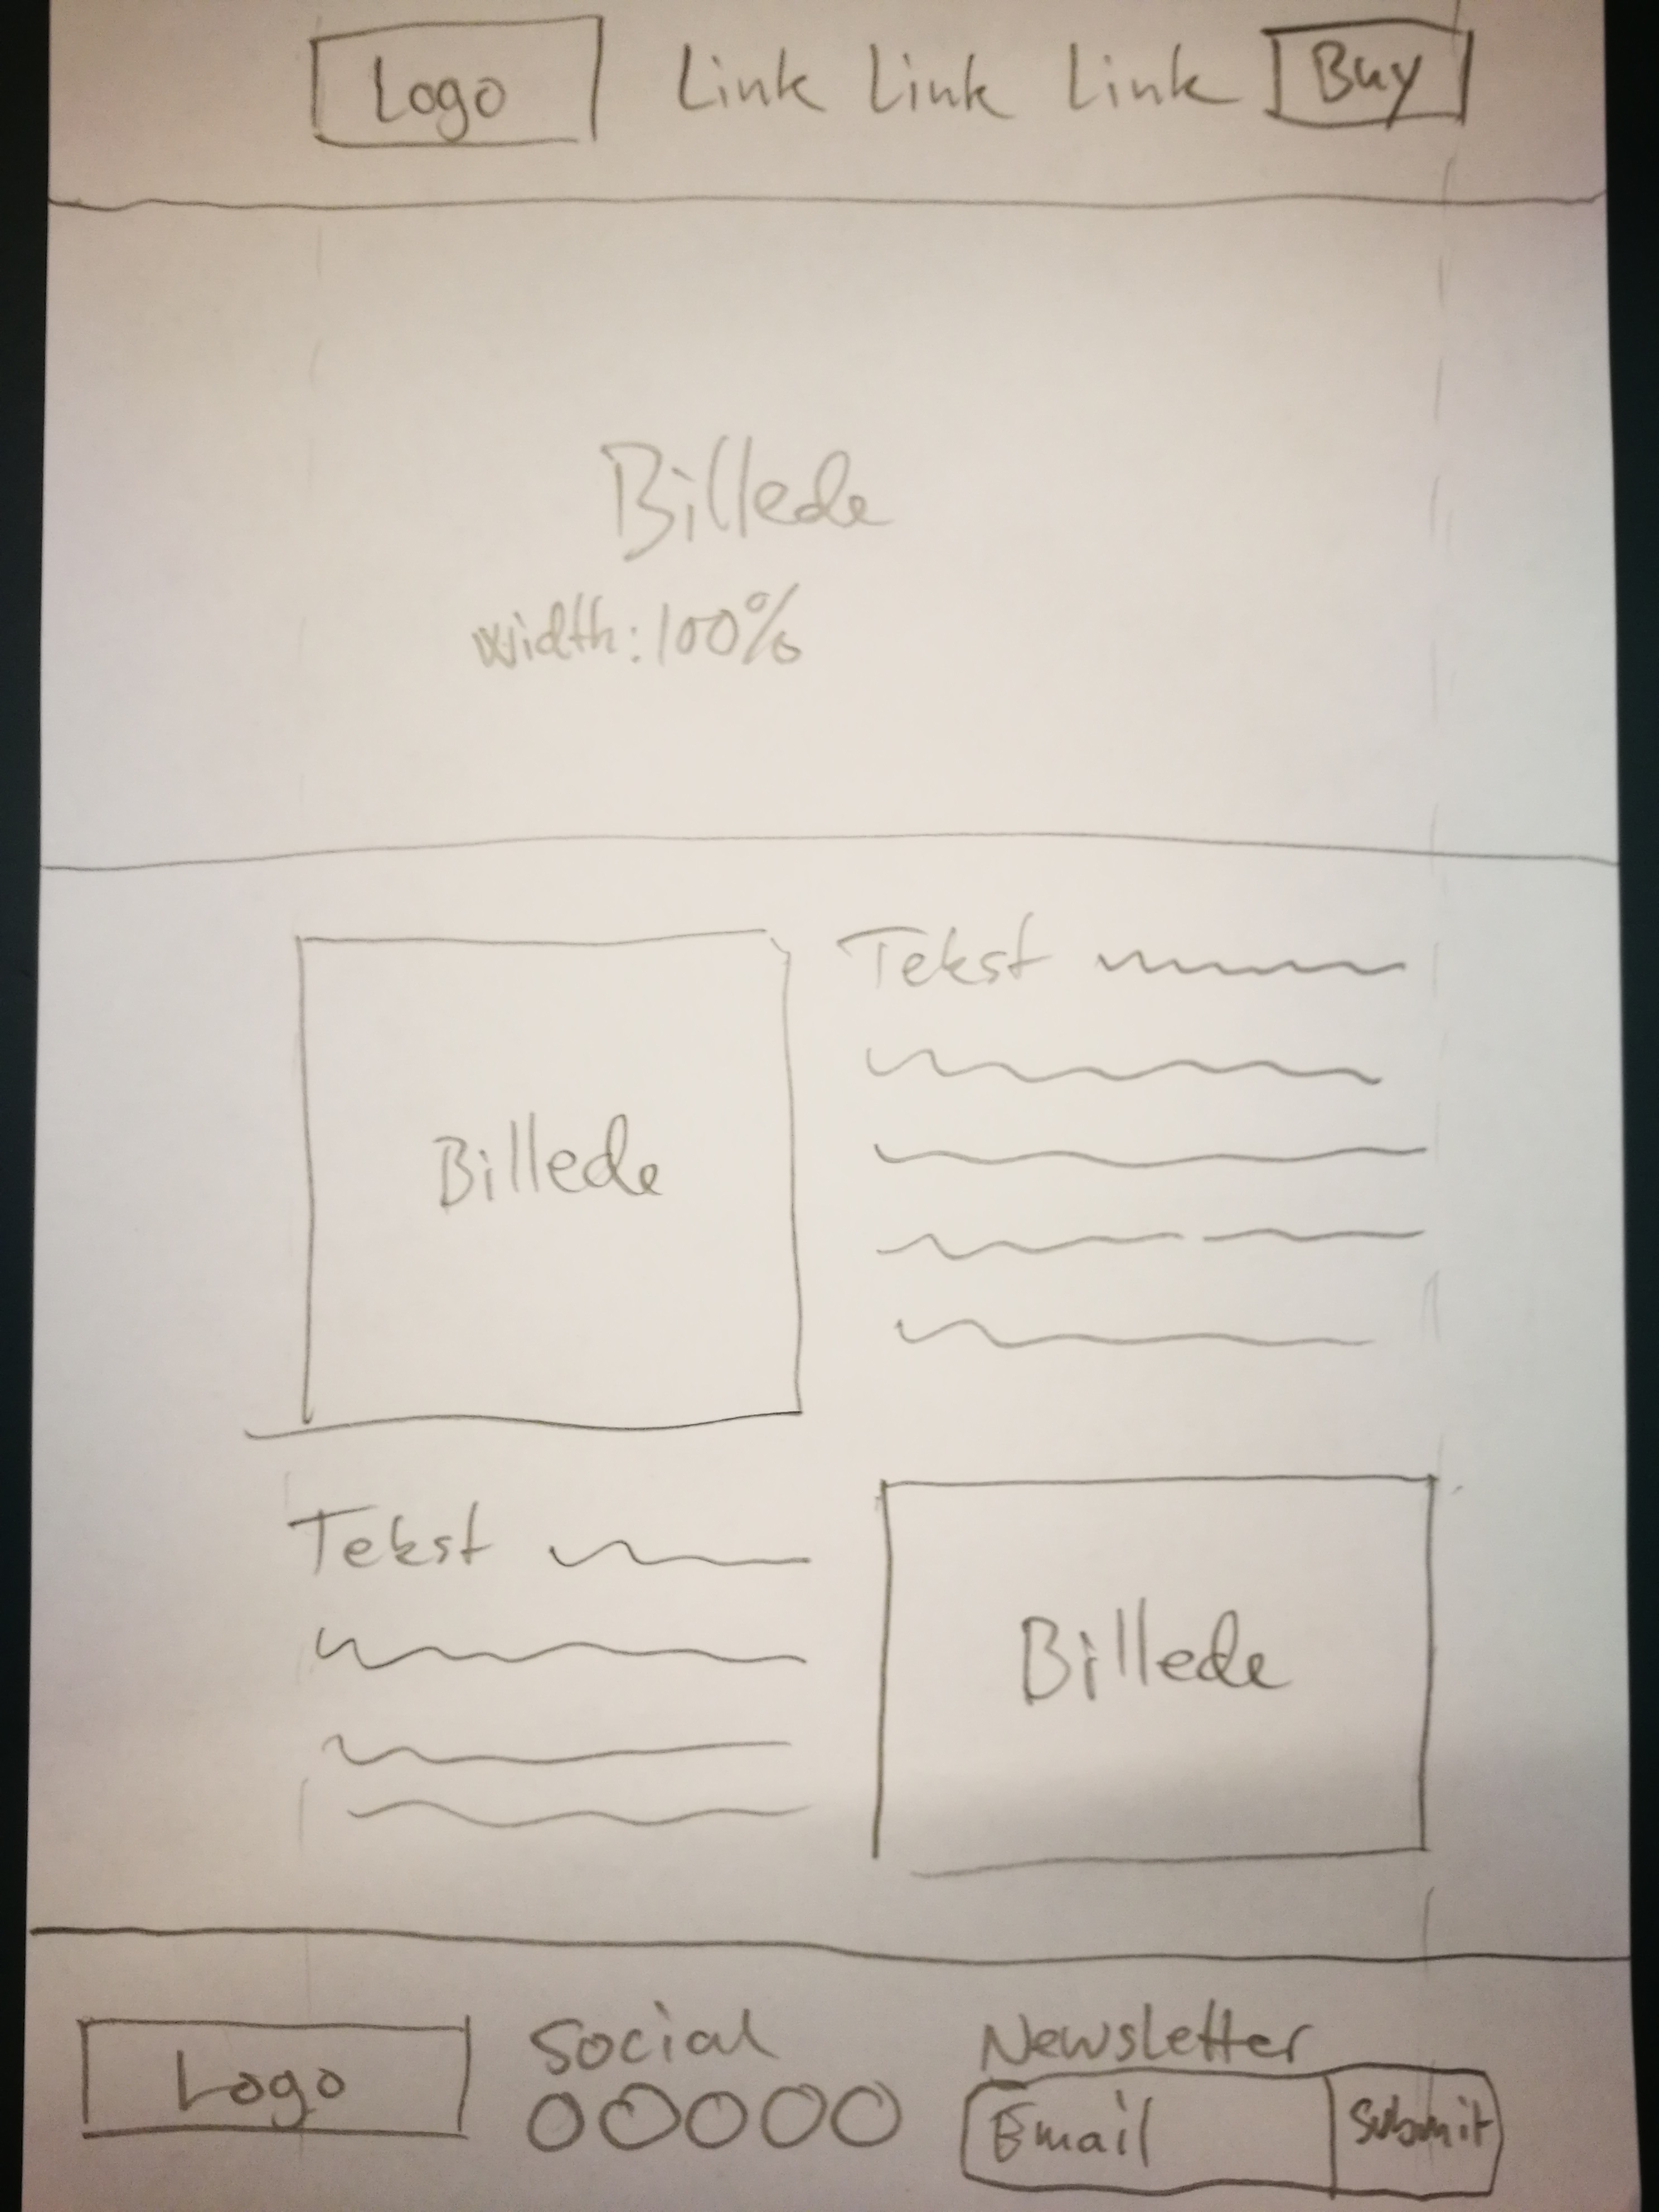 Logo Link Link Link Buy
Billede
width:100%
Tekst
Billede
Tekst
Billede
Logo
Social
Newsletter
Email Submit